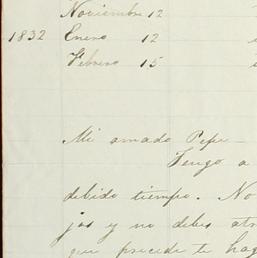 Noviembre 12
1832 Enero 12
Febrero 15
Mi amado Pepe —
Tengo a
debido tiempo. No
jas y no debes atr
que precede te hag